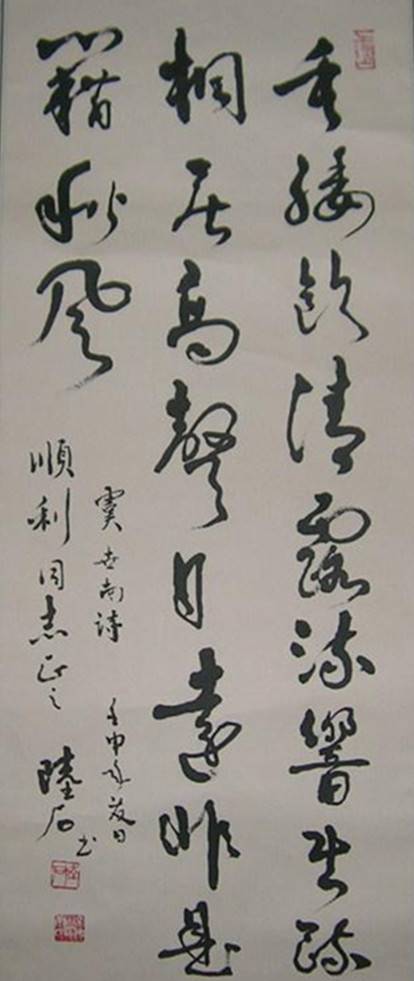 垂緌飲清露流響出疏
桐居高聲自遠非是
籍秋風
虞世南詩 壬申年夏日
順利同志正之 陸石书